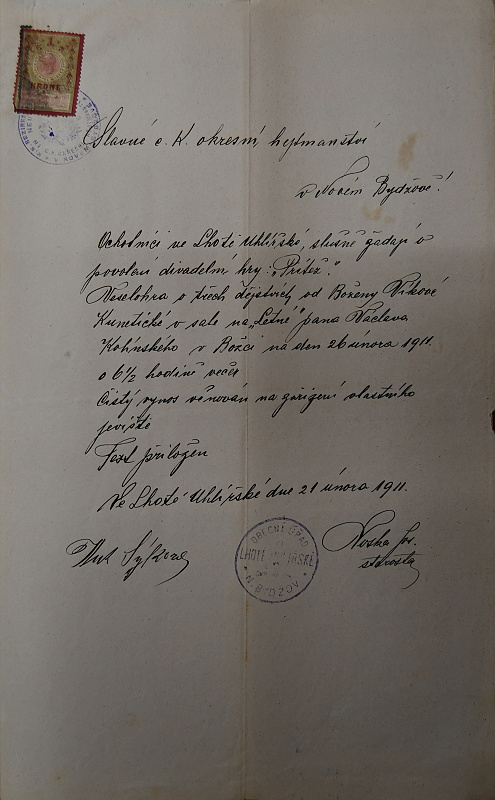 1
KRONE
Slavné c. K. okresní hejtmanství
v Novém Bydžově!
Ochotníci ve Lhotě Uhlířské, slušně žádají o
povolení divadelní hry: „Přítěž".
Veselohra o třech dějstvích od Boženy Vikové
Kunětické v sale na „Letně" pana Václava
Kohínského v Božci na den 26 února 1911.
o 6 1/2 hodině večer
Čistý vynos věnován na zařízení vlastního
jeviště
Text přiložen
Ve Lhotě Uhlířské dne 21 února 1911.
Sýkora
OBECNÍ ÚŘAD
LHOTĚ UHLÍŘSKÉ
Noska Jos.
starosta